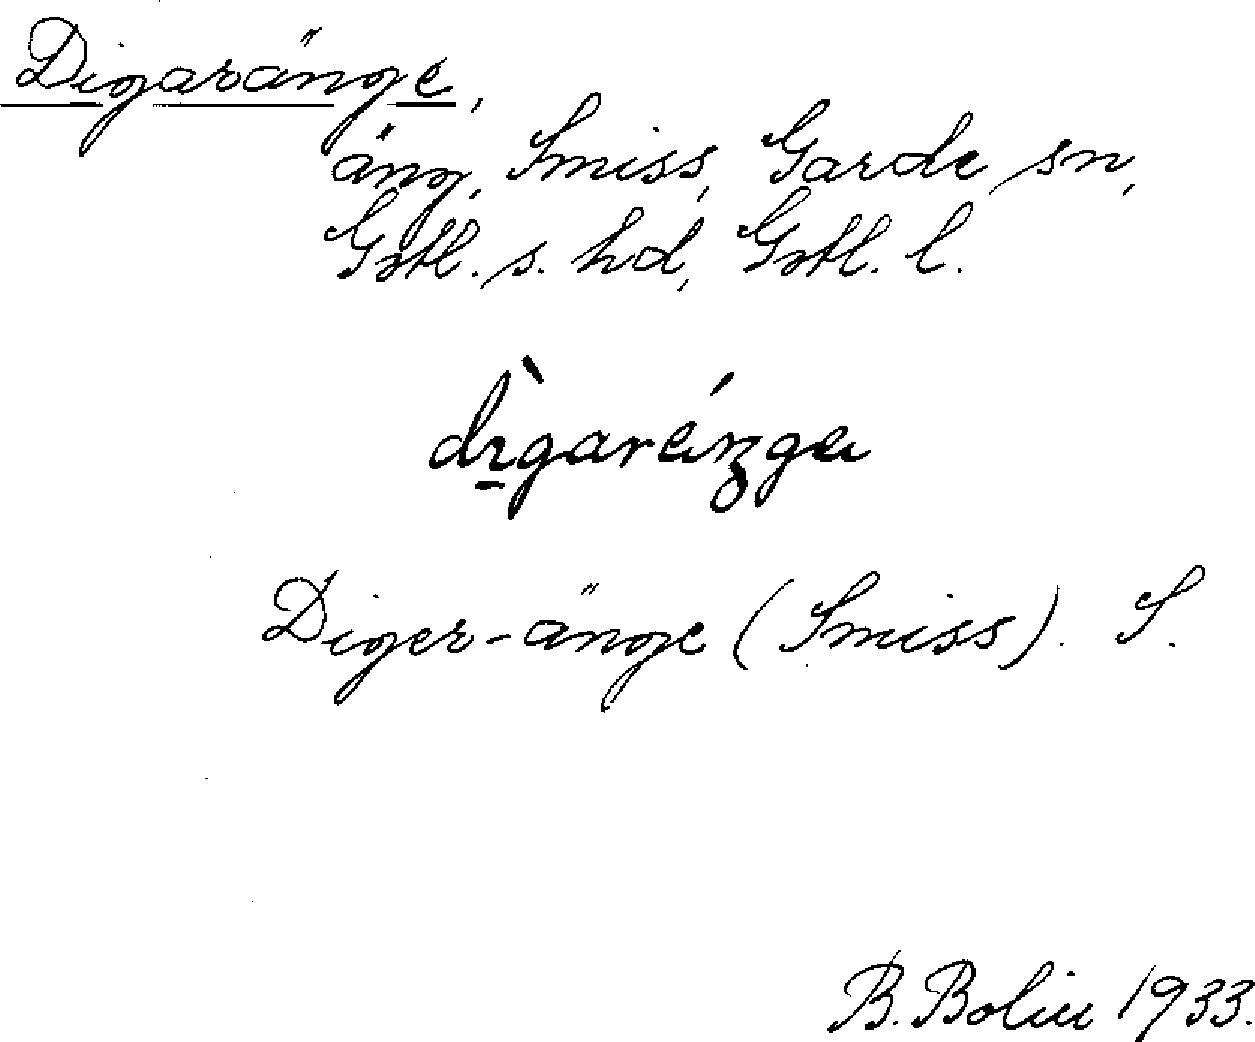 Digaränge,
äng, Smiss, Garde sn,
Gotl. s. hd, Gotl. l.
dìgaränga
Diger-änge (Smiss). S.
B. Bolin 1933.